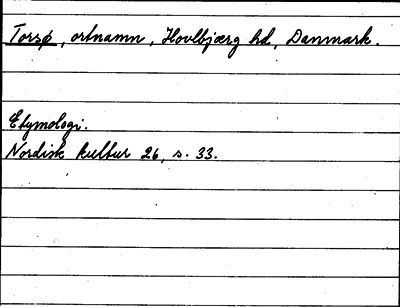 Torsø, ortnamn, Hovlbjærg hd, Danmark.
Etymologi.
Nordisk kultur 26, s. 33.